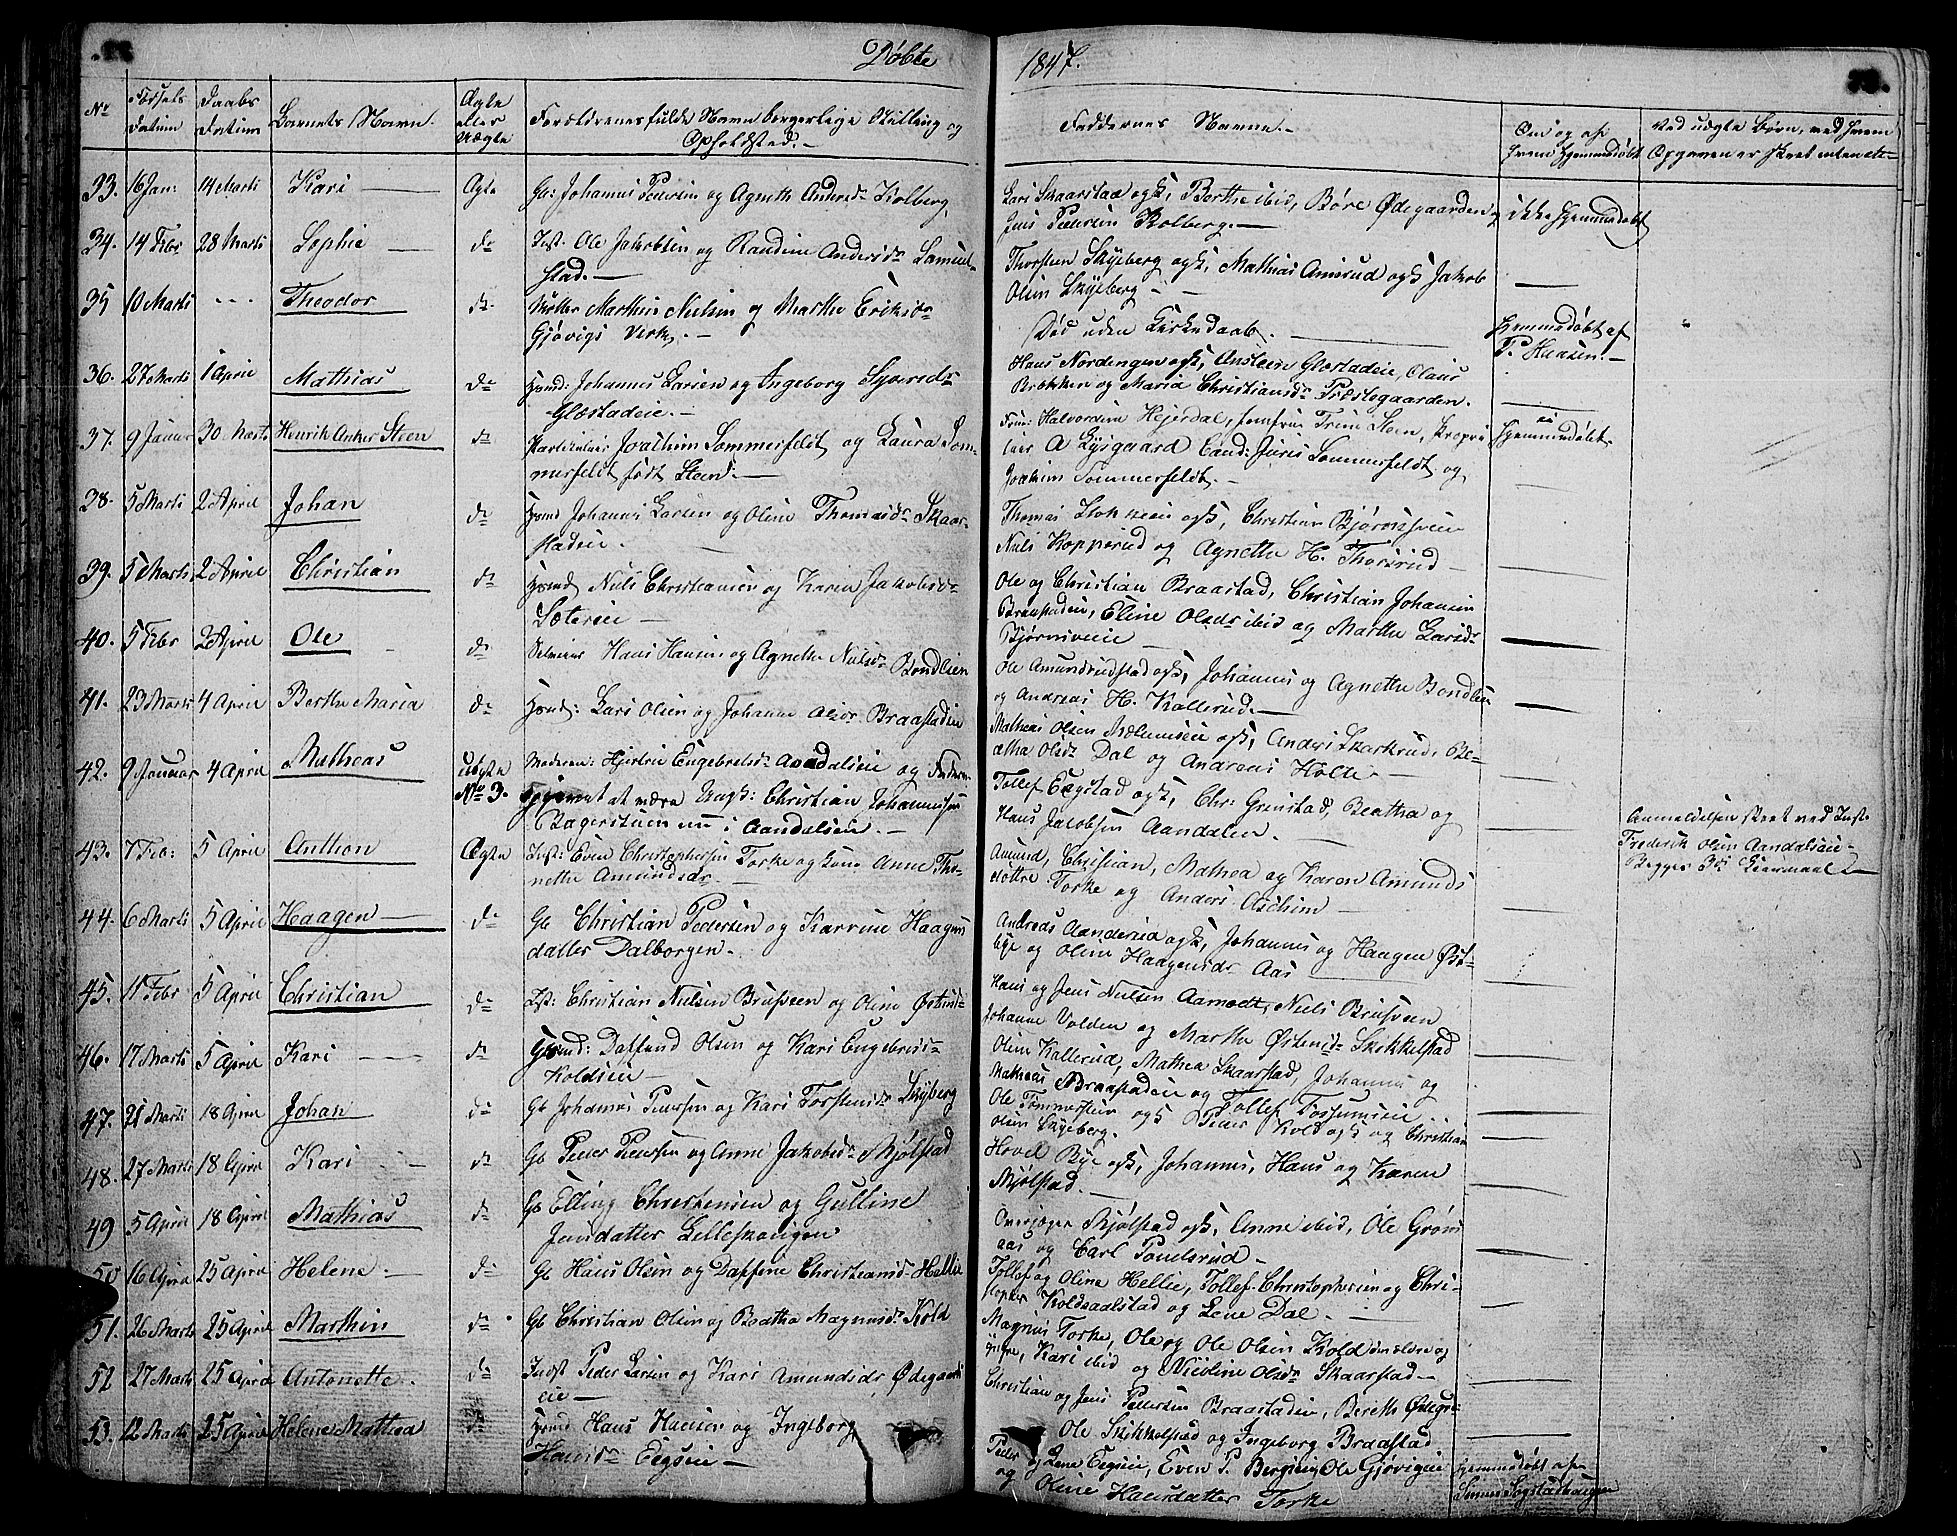 Døbte 1847.
No Fødsels Datum Daabs Datum Barnets Navn. Ægte eller Uægte Forældrenes fulde Navn borgerlige Stilling og Opholdsted.
Faddernes Navne. Om og af hvem hjemmedøbt Ved uægte Børn, ved hvem Opgaven er skeet
33. 16 Jan: 14 Marts Kari Ægte Gb: Johannes Pedersen og Agneth Andersdr Kolberg.
Lars Skaarstad ogk, Berthe ibid, Børe Ødegaarden ikke hjemmedøbt
Jens Pedersen Kolberg.
34. 14 Febr 28 Marts Sophie do Inst. Ole Jakobsen og Randine Andersdr Samuel-
stad.
Thorsten Skyeberg ogk, Mathias Amsrud ogk, Jakob
Olsen Skyeberg
35 10 Marts Theodor do Møller Marthin Nielsen og Marthe Eriksdr
Gjøvigs Verk.
Død uden Kirkedaab. Hjemmedøbt af
P. Hansen.
36. 27 Marts 1 April Mathias do Hmd: Johannes Larsen og Ingeborg Syversdr
Glæstadeie.
Hans Nordengen ogk, Ansteen Glæstadeie, Olaus
Bræhken og Maria Christiansdr Præstegaarden.
37. 9 Januar 30 Marts Henrik Anker Steen do Joachim Sommerfeldt og Laura Som-
merfeldt født Steen.
Frue Halvordine Hejerdal, Jomfrue Trine Steen, Propri hjemmedøbt
tair A Lysgaard Cand: Juris Sommerfeldt og
Joachim Sommerfeldt.
38. 5 Marts 2 April Johan do Hmd Johannes Larsen og Oline Thomasdr Skaar-
stadeie.
Thomas Stokkeeie ogk, Christian Bjørnsveie
Niels Kopperud og Agnethe H. Thorsrud
39. 5 Marts 2 April Christian do Hmd Niels Christiansen og Karen Jakobsdr
Sætereie
Ole og Christian Braastad, Christian Johansen
Braastadeie, Eline Olsdr ibid og Marthe Larsdr
Bjørnsveie
40. 5 Febr 2 April Ole do Selveier Hans Hansen og Agnethe Nielsdr Bondlien
Ole Amundrudstad ogk, Johannes og Agnethe Bondlien
og Andreas H. Kallerud.
41. 23 Marts 4 April Berthe Maria do Hmd: Lars Olsen og Johanne Olsdr Braastadeie
Mathias Olsen Mælumseie ogk, Anders Skarkrud, Be-
atha Olsdr Dal og Andreas Holte
42. 9 Januar 4 April Matheas Uægte No 3. Moderen: Hjertrie Engebretsdr Aandalseie og Faderen
opgivet at være Ungk: Christian Johannesen
Bagerstuen nu i Aandalseie.
Tollef Eegstad ogk, Chr: Grimstad, Beatha og
Hans Jacobsen Aandalen.
Anmeldelsen skeet ved Inst.
Frederik Olsen Aandalseie
Begges 3die Leiermaal
43. 7 Feb: 5 April Anthon Ægte Inst: Even Christophersen Torke og Kone Anne Tho-
nette Amundsdr
Amund, Christian, Mathea og Karen Amunds
døttre Torke og Anders Aschim
44. 6 Marts 5 April Haagen do Gb Christian Pedersen og Karrine Haagens
datter Dalborgen.
Andreas Aanderud ogk, Johannes og Haagen Øst-
bye og Oline Haagensdr Aas
45. 11 Febr 5 April Christian do Ist: Christian Nielsen Brusveen og Oline Østensdr
Hans og Jens Nielsen Aamodt, Niels Brusveen
Johanne Volden og Marthe Østensdr Skikkelstad
46. 17 Marts 5 April Kari do Hmd: Daffind Olsen og Kari Engebretsdr
Koldseie
Oline Kallerud, Mathea Skaarstad, Johannes og
Mathias Braastadeie og Tollef Fossumseie
47. 21 Marts 18 April Johan do Gb Johannes Pedersen og Kari Torstensdr Skyberg
Ole Tømmersteie ogk Peder Kold ogk og Christian
Olsen Skyeberg.
48. 27 Marts 18 April Kari do Gb Peder Pedersen og Anne Jakobsdr Mjølstad
Hovel Bye ogk, Johannes, Hans og Karen
Mjølstad.
49 5 April 18 April Mathias do Gb Elling Christensen og Gulline
Jensdatter Lilleskougen
Oversjøgen Mjølstad ogk, Anne ibid, Ole Grøns
aas og Carl Poulsrud
50 16 April 25 April Helene do Gb Hans Olsen og Daffine Christiansdr Helle
Tollef og Oline Helle, Tollef Christophersen og Chri-
stopher Koldsaalstad og Lene Dal
51. 26 Marts 25 April Marthin do Gb Christian Olsen og Beatha Magnusdr Kold
Magnus Torke, Ole og Ole Olsen Kold den ældre og
yngre, Kari ibid og Nicoline Olsdr Skaarstad
52 27 Marts 25 April Antonette do Indst Peder Larsen og Kari Amundsdr Ødegaard
eie
Christian og Jens Pedersen Braastadeie, Bereth Ødegr.
Ole Skikkelstad og Ingeborg Braastad
53. 12 Marts 25 April Helene Mathea do Hmd Hans Hansen og Ingeborg
Hansdr Eegseie
Peder og Lene Eegseie, Even P. Bergseie, Ole Gjøvigeie Hjemmedøbt af
og Oline Hansdatter Torke